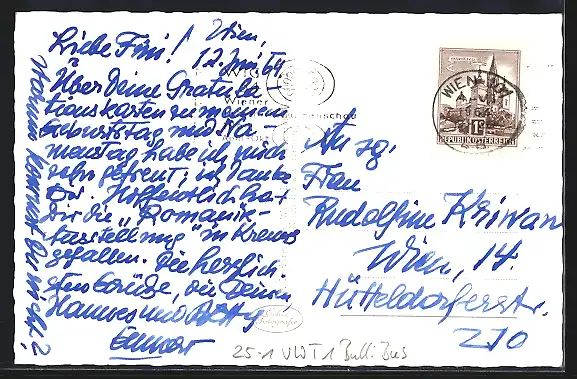 Wien,
12. Juni 64
Liebe Fini!
Über Deine Gratula-
tionskarten zu meinem
Geburtstag und Na-
menstag habe ich mich
sehr gefreut; ich danke
Dir. Hoffentlich hat
Dir die "Romanik-
ausstellung" in Krems
gefallen. Die herzlich-
sten Grüße, die Deinen
Hannes und Betty
Warum kommst Du nicht?
WIG
Wiener
WIEN
REPUBLIK ÖSTERREICH
An sg.
Frau
Rudolfine Kriwan
Wien, 14.
Hütteldorferstr.
270
25-1 VW T1 Bulli Bus